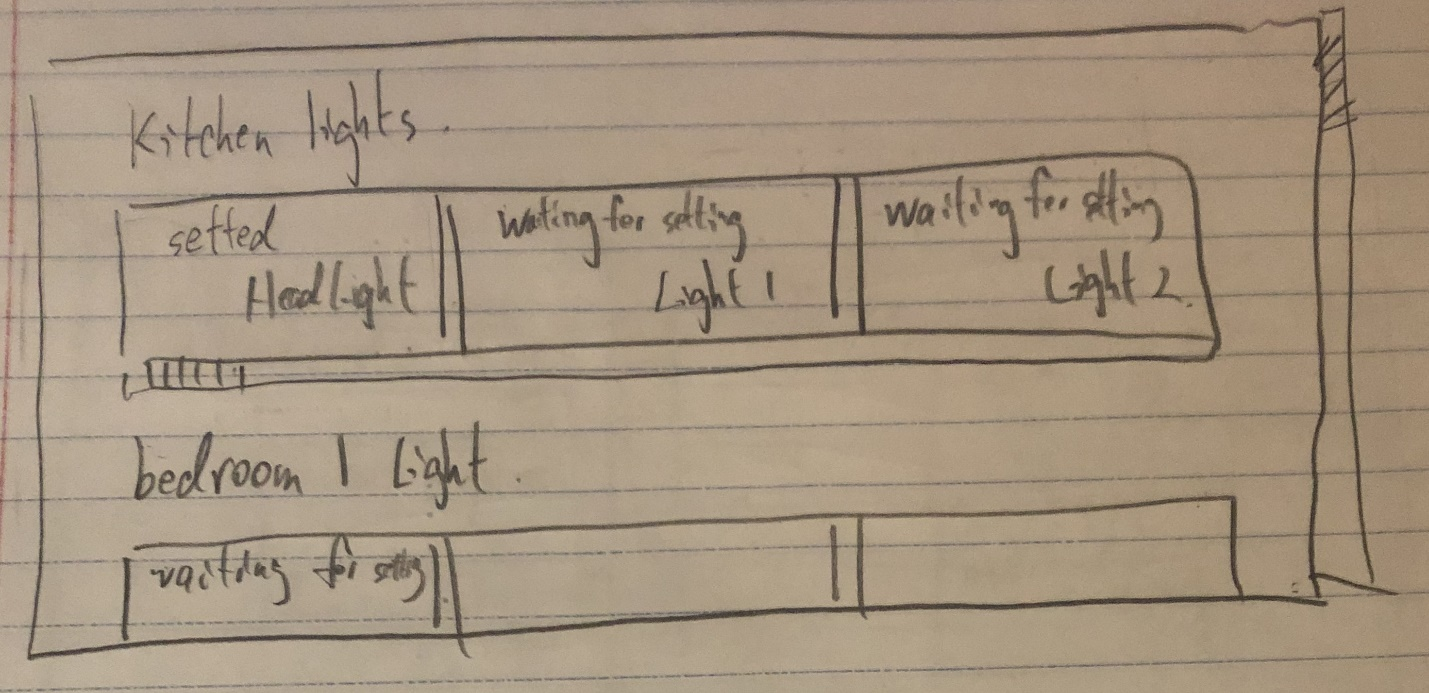 Kitchen lights.
setted
Headlight
Waiting for setting
Light 1
waiting for setting
Light 2.
bedroom 1 Light.
waiting for setting